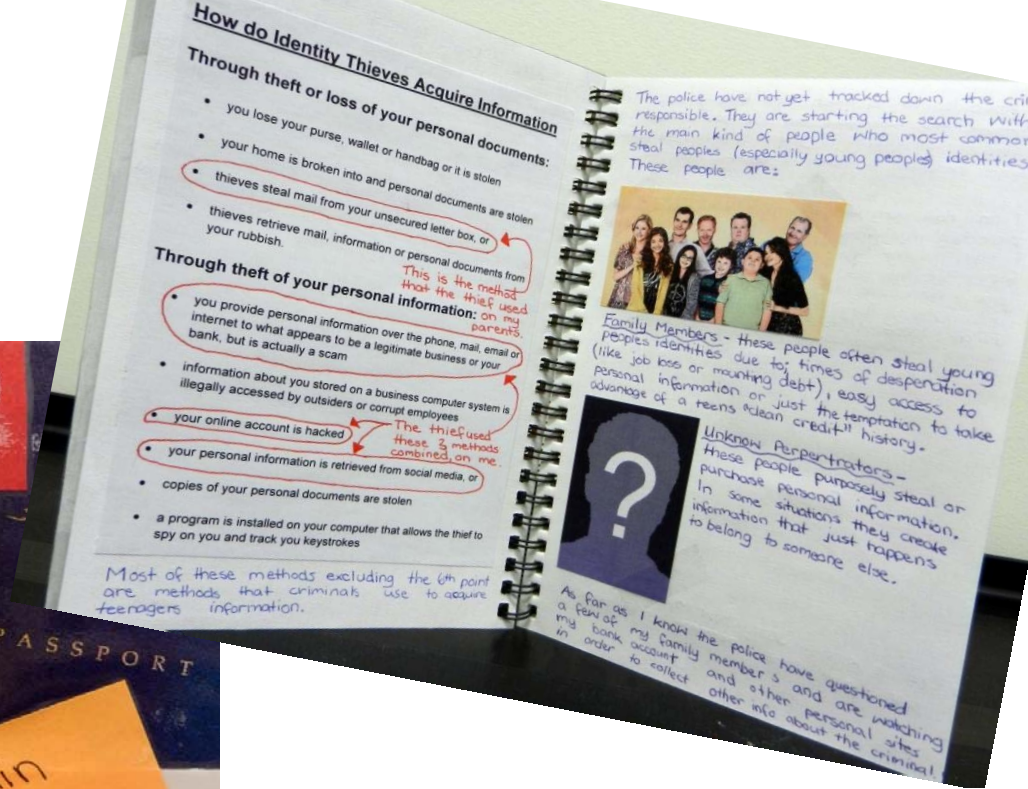 How do Identity Thieves Acquire Information
Through theft or loss of your personal documents:
• you lose your purse, wallet or handbag or it is stolen
• your home is broken into and personal documents are stolen
• thieves steal mail from your unsecured letter box, or
• thieves retrieve mail, information or personal documents from
your rubbish.
This is the method
that the thief used
on my
parents.
Through theft of your personal information:
• you provide personal information over the phone, mail, email or
internet to what appears to be a legitimate business or your
bank, but is actually a scam
• information about you stored on a business computer system is
illegally accessed by outsiders or corrupt employees
• your online account is hacked
The thief used
these 3 methods
combined, on me.
• your personal information is retrieved from social media, or
• copies of your personal documents are stolen
• a program is installed on your computer that allows the thief to
spy on you and track you keystrokes
Most of these methods excluding the 6th point
are methods that criminals use to acquire
teenagers information.
The police have not yet tracked down the cri
responsible. They are starting the search with
the main kind of people who most common
steal peoples (especially young peoples) identities
These people are:
Family Members - these people often steal young
peoples identities due to; times of desperation
(like job loss or mounting debt), easy access to
personal information or just the temptation to take
advantage of a teens "clean credit" history.
?
Unknow Perpentrators -
these people purposely steal or
purchase personal information.
In some situations they create
information that just happens
to belong to someone else.
As far as I know the police have questioned
a few of my family members and are watching
my bank account and other personal sites
in order to collect other info about the criminal.
PASSPORT
in